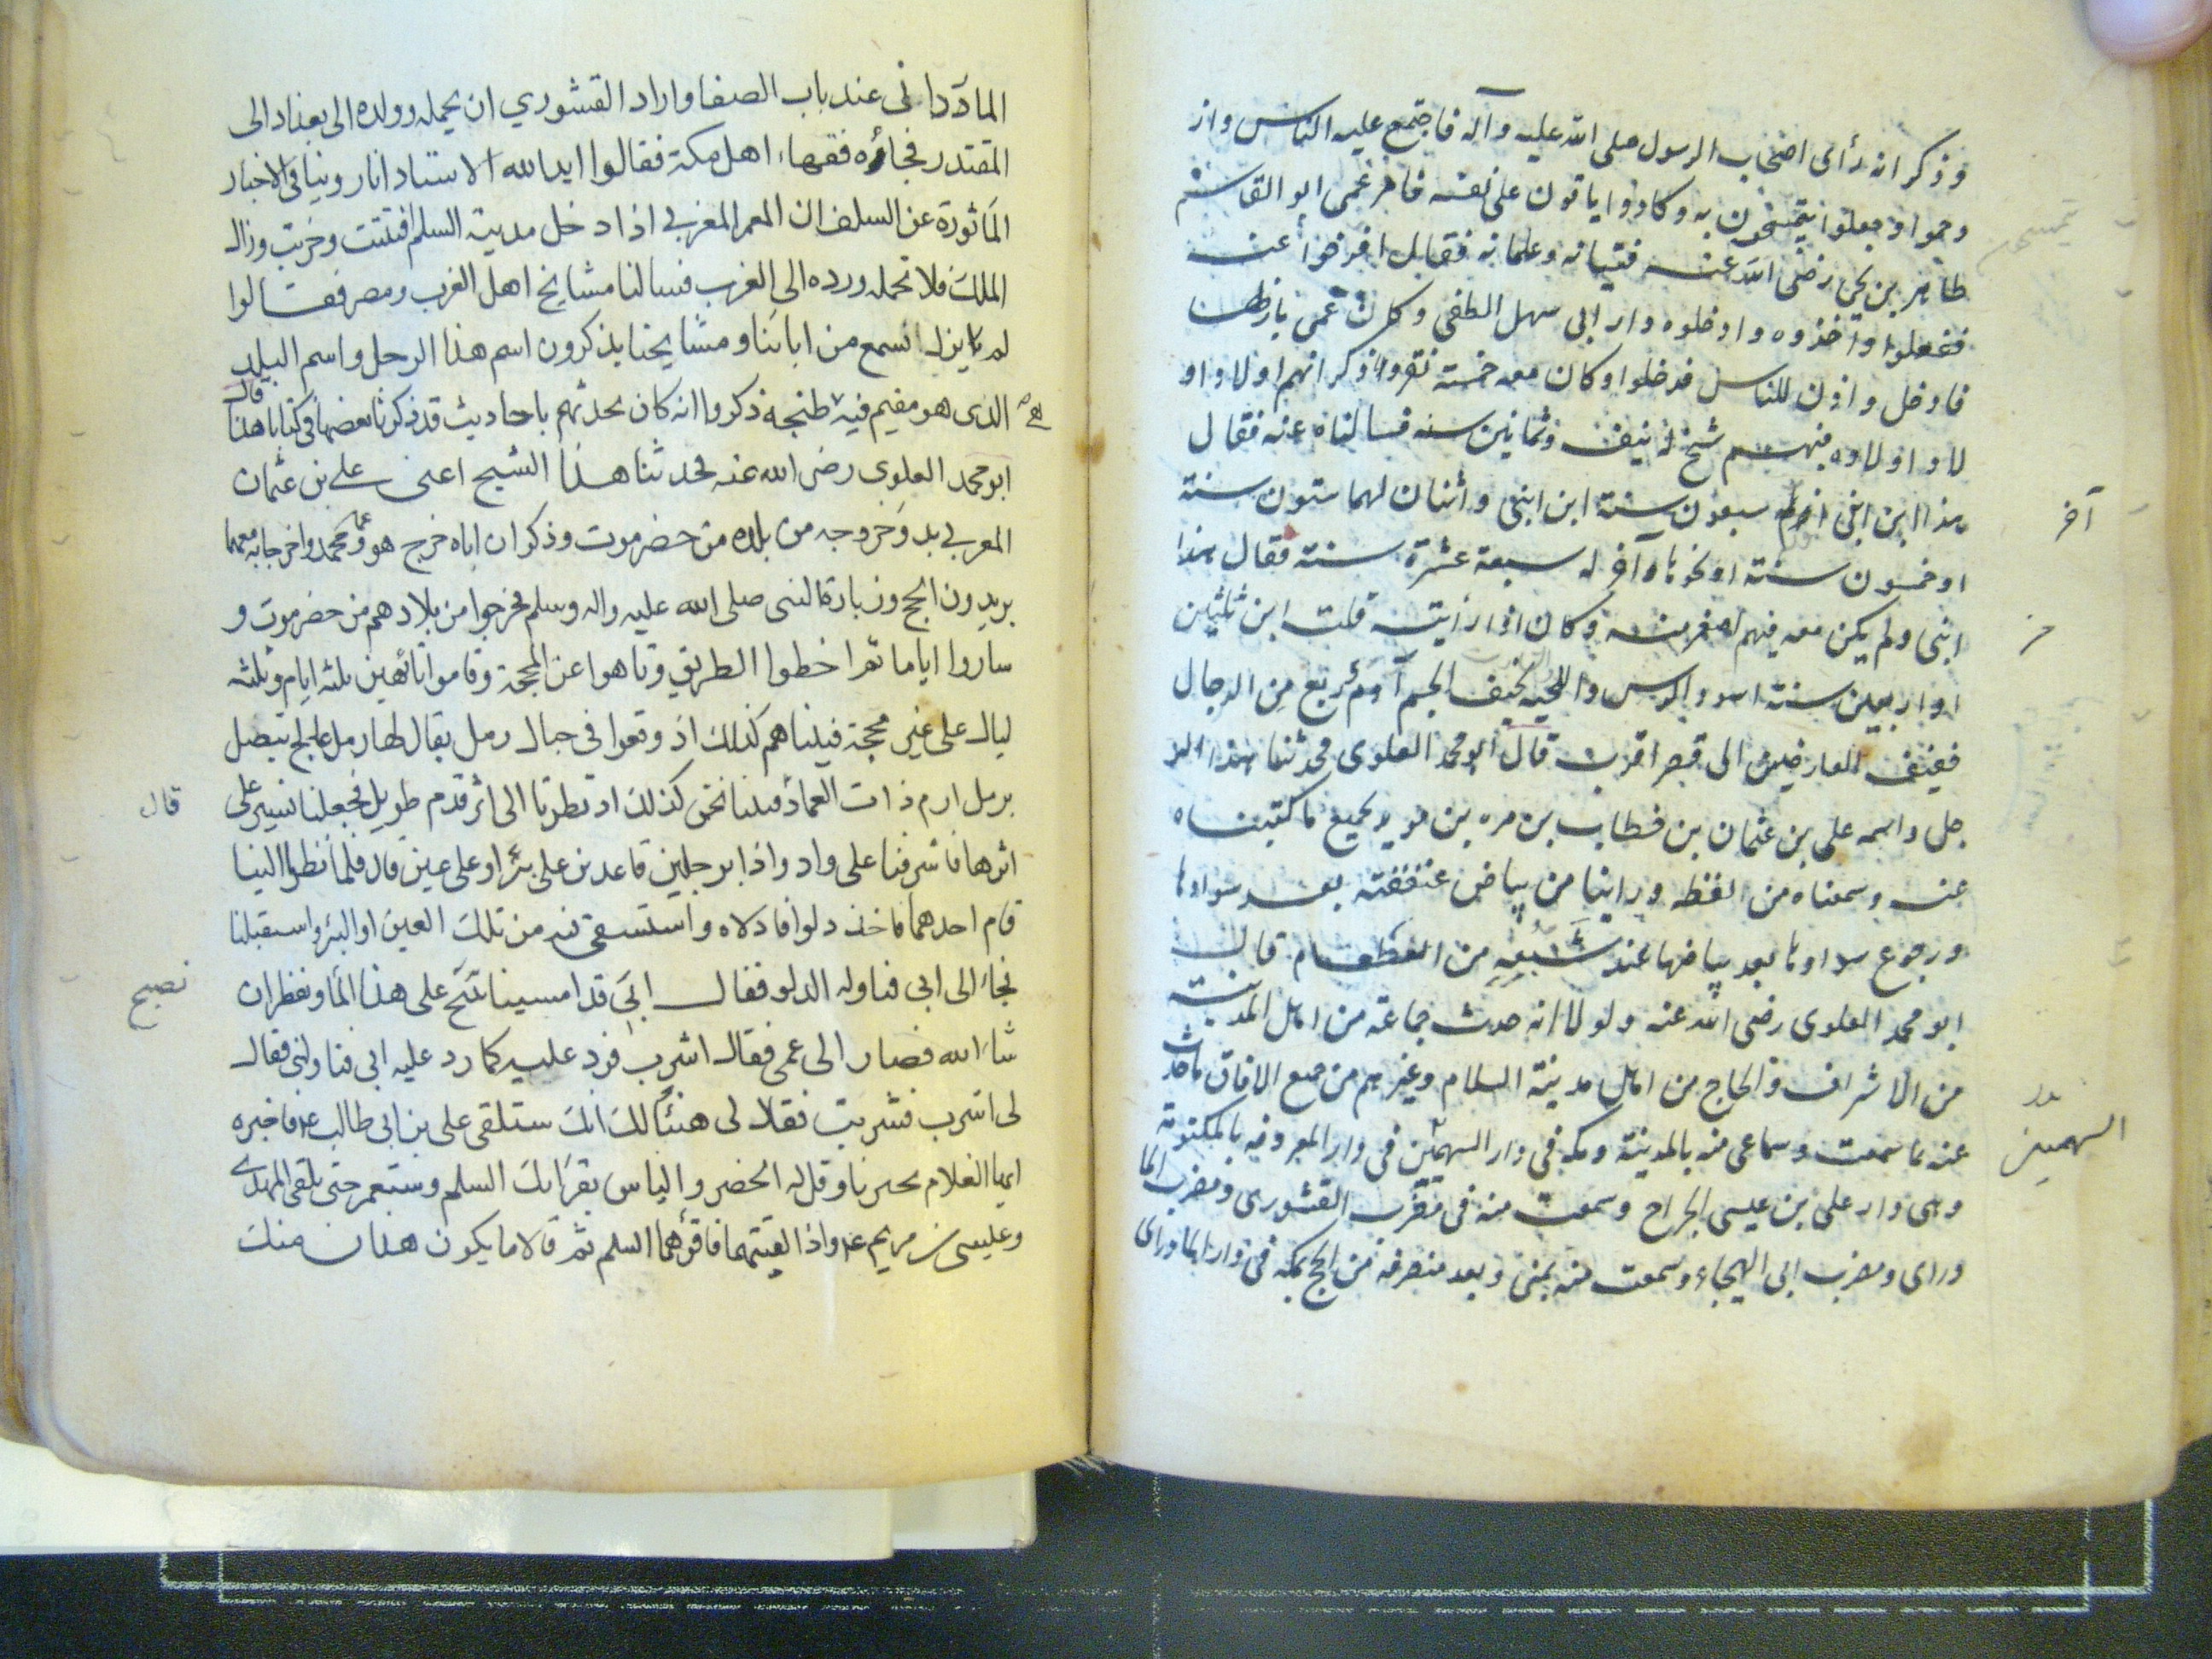 وذكر انه رأى اصحاب الرسول صلى الله عليه وآله فاجتمع عليه الناس واز
دحموا وجعلوا يتمسحون به وكادوا ياتون على نفسه فامر عمى ابو القاسم
طاهر بن يحيى رضى الله عنه فتيانه وغلمانه فقال افرجوا عنه
ففعلوا واخذوه وادخلوه دار ابى سهل الطفى وكان عمى نازلها
فادخل واذن للناس فدخلوا وكان معه خمسة نفر وذكر انهم اولاد او
لاد اولاده فيهم شيخ له نيف وثمانين سنة فسالناه عنه فقال
هذا ابن ابنى وآخر له سبعون سنة ابن ابنى واثنان لهما ستون سنة
او خمسون سنة او نحوها وآخر له سبعة عشرة سنة فقال هذا
ابنى ولم يكن معه فيهم اصغر منه وكان اذا رأيته قلت ابن ثلثين
او اربعين سنة اسود الراس واللحية نحيف الجسم آدم ربع من الرجال
خفيف العارضين الى قصر اقرب قال ابو محمد العلوى فحدثنا هذا الر
جل واسمه على بن عثمان بن خطاب بن مره بن مويد بجميع ما كتبناه
عنه وسمعناه من لفظه وراينا من بياض عنفقته بعد سوادها
ورجوع سوادها بعد بياضها عند شبعه من الطعام قال
ابو محمد العلوى رضى الله عنه ولولا انه حدث جماعة من اهل المدينة
من الاشراف والحاج من اهل مدينة السلام وغيرهم من جميع الافاق ما حدثت
عنه بما سمعت وسماعى منه بالمدينة ومكه فى دار السهميين فى دار المعروفه بالمكتوبة
وهى دار على بن عيسى الجراح وسمعت منه فى مضرب القشورى ومضرب الما
درائى ومضرب ابى الهيجاء وسمعت منه بمنى وبعد منصرفه من الحج بمكه فى دار المادرائى
آخر
السهميين
المادرانى عند باب الصفا واراد القشوري ان يحمله وولده الى بغداد الى
المقتدر فجاءه فقهاء اهل مكة فقالوا ايد الله الاستاد انا روينا فى الاخبار
الماثورة عن السلف ان المعمر المغربي اذا دخل مدينة السلم افتتنت وخربت وزال
الملك فلا تحمله ورده الى الغرب فسالنا مشايخ اهل الغرب ومصر فقالوا
لم يزل نسمع من ابائنا ومشايخنا يذكرون اسم هذا الرجل واسم البلد
الذى هو مقيم فيه طنجه ذكروا انه كان يحدثهم باحاديث قد ذكرنا بعضها فى كتابنا هذا قال
ابو محمد العلوى رضى الله عنه فحدثنا هذا الشيخ اعنى على بن عثمان
المعربي بدو خروجه من بلده من حضرموت وذكر ان اباه خرج هو وعمه محمد واخرجا به معهما
يريدون الحج وزيارة النبى صلى الله عليه واله وسلم فخرجوا من بلادهم من حضرموت و
ساروا اياما ثم اخطوا الطريق وتاهوا عن المحجة وقاموا تائهين ثلثه ايام وثلثه
ليال على غير محجة فبينا هم كذلك اذ وقعوا فى جبال رمل يقال لها رمل عالج يتصل
برمل ارم ذات العماد فبينا نحن كذلك اذ نظرنا الى اثر قدم طويل فجعلنا نسير على
اثرها فاشرفنا على واد واذا برجلين قاعدين على بئر او على عين قال فلما نظرا الينا
قام احدهما فاخذ دلوا فادلاه واستسقى فيه من تلك العين او البئر واستقبلنا
فجاء الى ابى فناوله الدلو فقال ابى قد امسينا ننيخ على هذا الماء ونفطر ان
شاء الله فصار الى عمى فقال اشرب فرد عليه كما رد عليه ابى فناولنى فقال
لى اشرب فشربت فقالا لى هنيئا لك انك ستلقى على بن ابى طالب ع م فاخبره
ايها الغلام بخبرنا وقل له الخضر والياس يقرانك السلم وستعمر حتى تلقى المهدى
وعيسى بن مريم ع م واذا لقيتهما فاقرئهما السلم ثم قالا ما يكون هذان منك
قال
نصبح